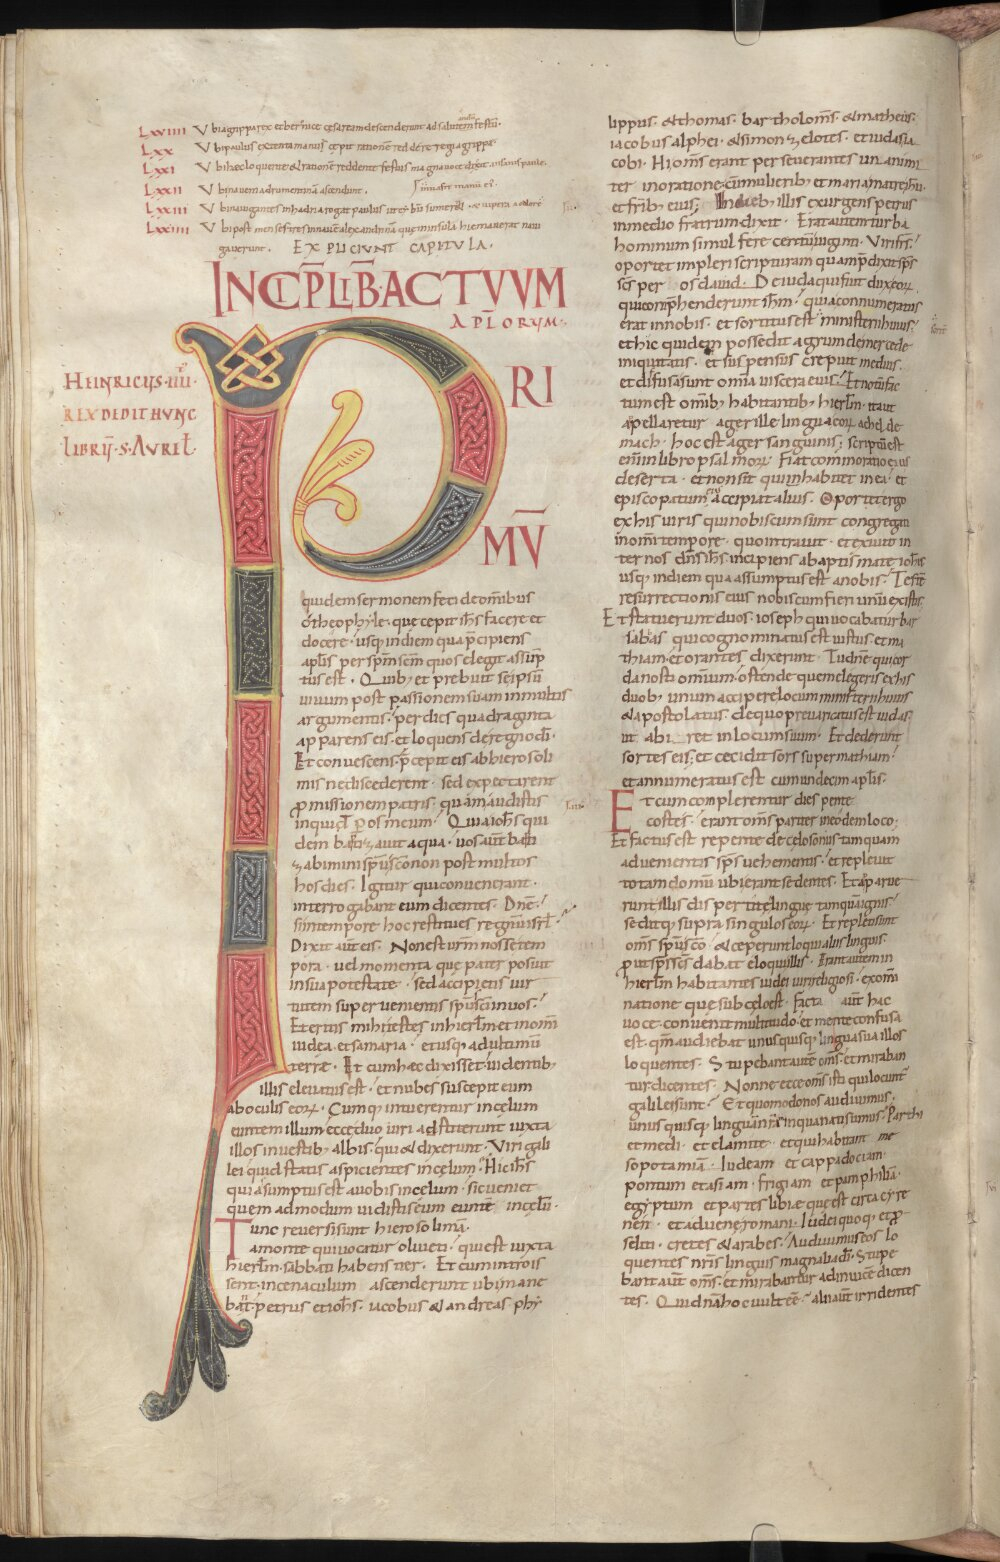 LXVIIII Ubi agrippa rex et bernice cesaream descenderunt ad salutandum festū.
LXX Ubi paulus extenta manu cepit rationē reddere regi agrippe
LXXI Ubi hec loquente & rationē reddente festus magna uoce dixit. insanis paule.
LXXII Ubi nauem adrumetinā ascendunt.
LXXIII Ubi nauigantes in hadria rogat paulus ut
LXXIIII Ubi post menses tres in nauē alexandrinā que in insula hiemauerat naui
gauerunt. EXPLICIUNT CAPITULA.
INCIP̄ LIB̄ ACTUUM
APL̄ORUM.
HEINRICUS IIII
REX DEDIT HUNC
LIBRŪ S. AUREL.
PRI
MŪ
quidem sermonem feci de omnibus
o theophyle. que cepit ih̄s facere et
docere. usq; in diem qua p̄cipiens
apl̄is per sp̄m sc̄m quos elegit assūp
tus est. Quib; et prebuit seipsū
uiuum post passionem suam in multis
argumentis. per dies quadraginta
apparens eis. et loquens de regno dī.
Et conuescens. p̄cepit eis ab hierosoli
mis ne discederent. sed expectarent
promissionem patris. quam audistis
inquid per os meum. Quia ioh̄s qui
dem aqua. uos aut̄
abimini sp̄u sc̄o non post multos
hos dies. Igitur qui conuenerant.
interrogabant eum dicentes. Dn̄e.
si in tempore hoc restitues regnū isrl̄.
Dixit aut̄ eis. Non est urm̄ nosse tem
pora. uel momenta que pater posuit
in sua potestate. sed accipietis uir
tutem superuenientis sp̄u sc̄i in uos.
Et eritis mihi testes in hierl̄m et in omī
iudea. et samaria. et usq; ad ultimū
terre. Et cum hec dixisset uidentib;
illis eleuatus est. et nubes suscepit eum
ab oculis eorum. Cumq; intuerentur in celum
euntem illum. ecce duo uiri adstiterunt iuxta
illos in uestib; albis. qui & dixerunt. Viri gali
lei quid statis aspicientes in celum. Hic ih̄s
qui asumptus est a uobis in celum. sic ueniet
quem admodum uidistis eum euntē in celū.
Tunc reuersi sunt hierosolimā.
a monte qui uocatur oliueti. qui est iuxta
hierl̄m. sabbati habens iter. Et cum introis
sent in cenaculum ascenderunt ubi mane
bat. petrus et ioh̄s. iacobus & andreas. phy
lippus. & thomas. bartholoms̄ & matheus.
iacobus alphei. & simon zelotes. et iudas ia
cobi. Hi oms̄ erant perseuerantes unanimi
ter in oratione. cū mulierib; et maria matre
et frib; eius; In dieb; illis exurgens petrus
in medio fratrum dixit. Erat autem turba
hominum simul fere centū uiginti. Viri frs̄.
oportet impleri scripturam quam p̄dixit sp̄s
sc̄s per os dauid. De iuda qui fuit dux eorum
qui comp̄henderunt ih̄m. quia connumeratus
erat in nobis. et sortitus est ministerii huius.
et hic quidem possedit agrum de mercede
iniquitatis. et suspensus crepuit medius.
et difusa sunt omnia uiscera eius. Et notū fac
tum est omib; habitantib; hierl̄m. ita ut
apellaretur ager ille lingua eorum achel de
mach. hoc est ager sanguinis; scriptū est
eni in libro psalmorum. Fiat commoratio eius
deserta. et non sit qui inhabitet in ea. et
episcopatum eius accipiat alius. Oportet ergo
ex his uiris qui nobiscum sunt congregati
in omī tempore. quo intrauit. et exiuit in
ter nos dns̄ ih̄s. incipiens a baptismate ioh̄is
usq; in diem qua assumptus est a nobis. Testē
resurrectionis eius nobiscum fieri unū ex istis.
Et statuerunt duos. ioseph qui uocabatur bar
sabas qui cognominatus est iustus. et ma
thiam. et orantes dixerunt. Tu dn̄e qui cor
da nosti omnium. ostende quem elegeris ex his
duob; unum accipere locum ministerii huius
& apostolatus. de quo preuaricatus est iudas.
ut abiret in locum suum. Et dederunt
sortes eis; et cecidit sors super mathiam.
et annumeratus est cum undecim apl̄is.
Et cum complerentur dies pente
costes. erant oms̄ pariter in eodem loco;
Et factus est repente de celo sonus. tamquam
aduenientis sp̄s uehementis. et repleuit
totam domū ubi erant sedentes. Et aparue
runt illis dispertite lingue tamquā ignis.
seditq; supra singulos eorum. Et repleti sunt
oms̄ sp̄u sc̄o & ceperunt loqui aliis linguis.
prout sp̄s sc̄s dabat eloqui illis. Erant autem in
hierl̄m habitantes iudei uiri religiosi. ex omī
natione que sub celo est. Facta aut̄ hac
uoce. conuenit multitudo. et mente confusa
est. qm̄ audiebat unusquisq; lingua sua illos
loquentes. Stupebant autē oms̄. et miraban
tur dicentes. Nonne ecce oms̄ isti qui locunt̄
galilei sunt. Et quomodo nos audiuimus.
unusquisq; linguā nr̄am in qua nati sumus. Parthi
et medi. et elamite. et qui habitant me
sopotamiā. Iudeam et cappadociam.
pontum et asiam. frigiam et pamphiliā.
egyptum et partes libiæ que est circa cyre
nen. et aduene romani. Iudei quoq; et pro
seliti. cretes & arabes. Audiuimus eos lo
quentes nr̄is linguis magnalia dī. Stupe
bant aut̄ oms̄. et mirabantur ad inuicē dicen
tes. Quidnā hoc uult eē. alii aut̄ irridentes